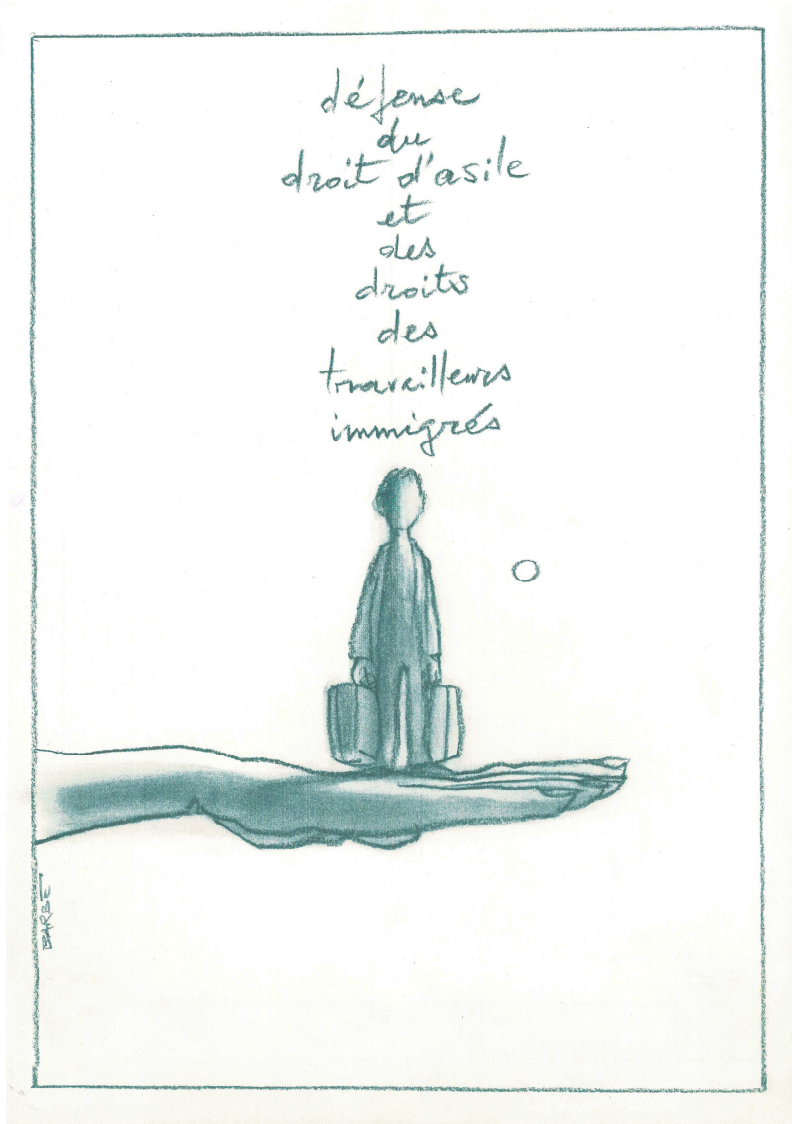 défense
du
droit d'asile
et
des
droits
des
travailleurs
immigrés
BARBE